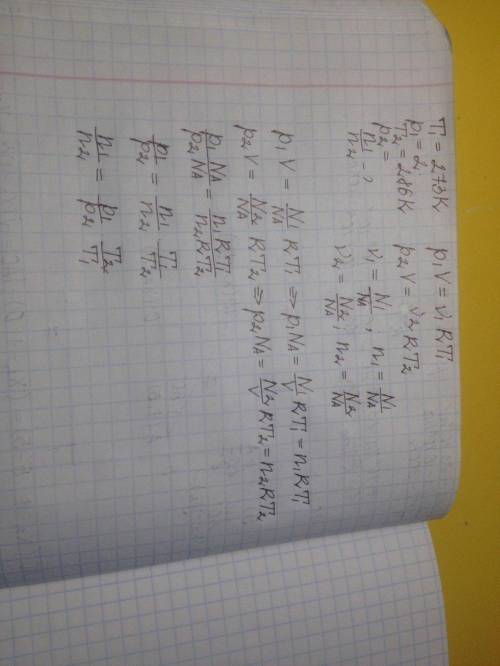 T₁ = 273K p₁V = ν₁RT₁
p₁ = 2
T₂ = 286K p₂V = ν₂RT₂
p₂ =
n₁/n₂ - ? ν₁ = N₁/NA, n₁ = N₁/NA
ν₂ = N₂/NA, n₂ = N₂/NA
p₁V = N₁/NA RT₁ ⇒ p₁NA = N₁/V RT₁ = n₁RT₁
p₂V = N₂/NA RT₂ ⇒ p₂NA = N₂/V RT₂ = n₂RT₂
p₁NA/p₂NA = n₁RT₁/n₂RT₂
p₁/p₂ = n₁/n₂ T₁/T₂
n₁/n₂ = p₁/p₂ T₂/T₁